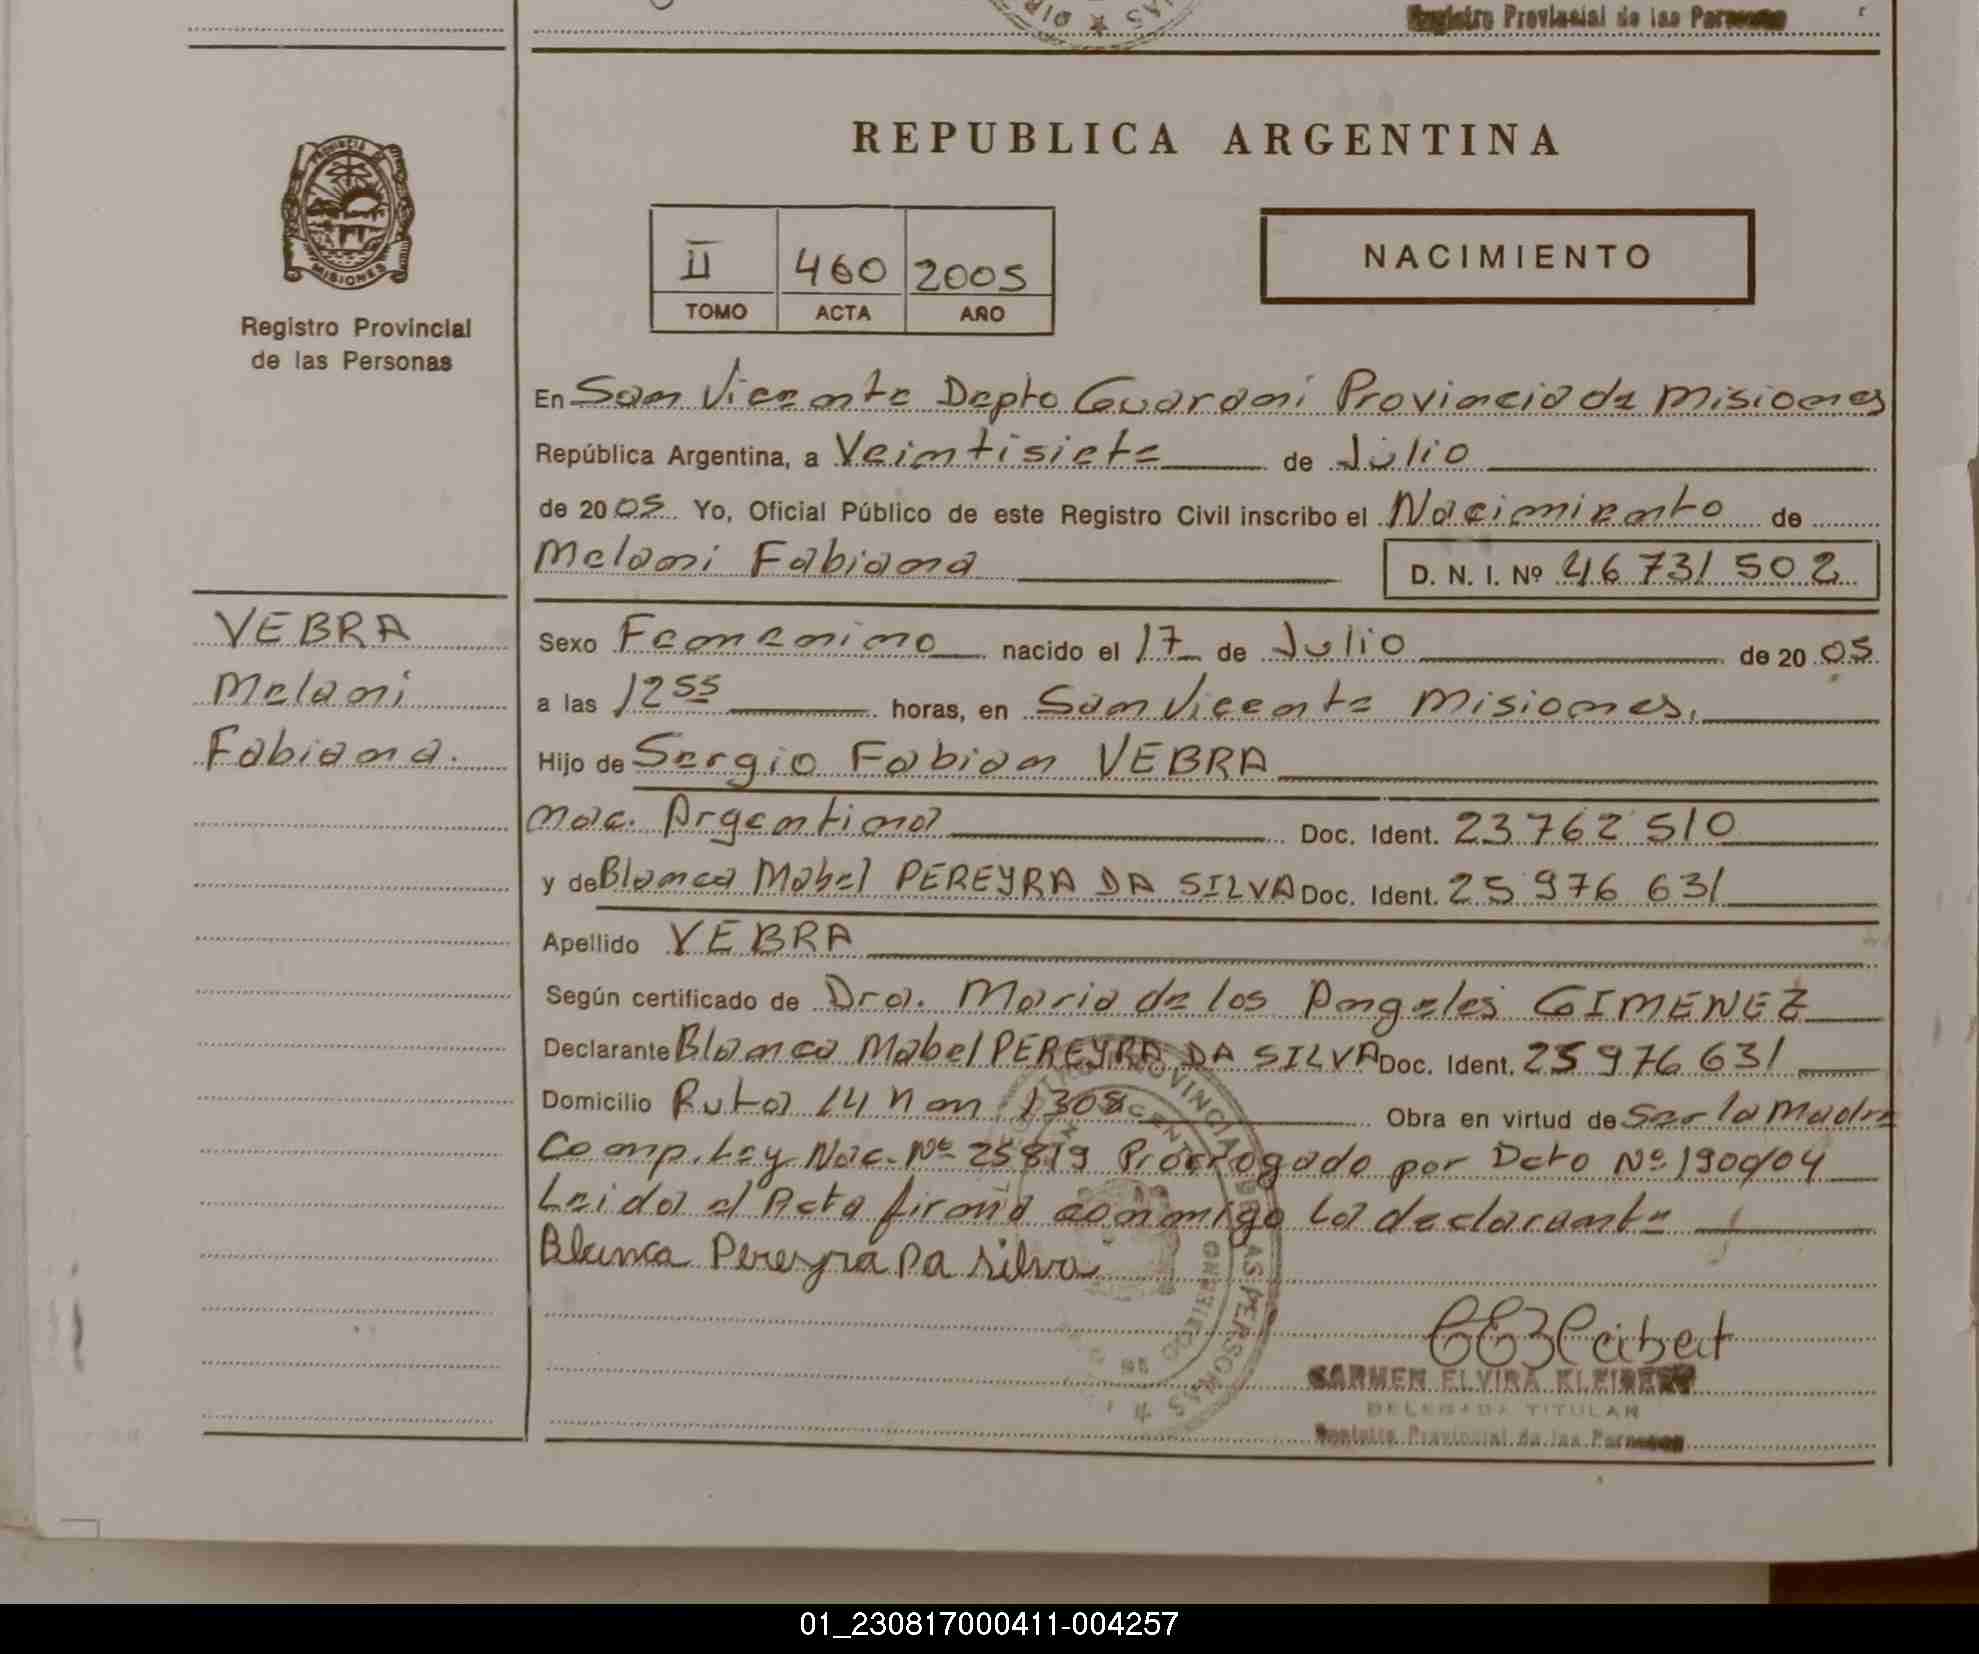 Registro Provincial de las Personas
REPUBLICA ARGENTINA
PROVINCIA DE
MISIONES
Registro Provincial
de las Personas
II 460 2005
TOMO ACTA AÑO
NACIMIENTO
En San Vicente Depto Guaraní Provincia de Misiones
República Argentina, a Veintisiete de Julio
de 2005 Yo, Oficial Público de este Registro Civil inscribo el Nacimiento de
Melani Fabiana D. N. I. Nº 46 731 502
VEBRA
Melani
Fabiana.
Sexo Femenino nacido el 17 de Julio de 2005
a las 12 55 horas, en San Vicente Misiones.
Hijo de Sergio Fabian VEBRA
Nac. Argentina Doc. Ident. 23 762 510
y de Blanca Mabel PEREYRA DA SILVA Doc. Ident. 25 976 631
Apellido VEBRA
Según certificado de Dra. Maria de los Angeles GIMENEZ
Declarante Blanca Mabel PEREYRA DA SILVA Doc. Ident. 25 976 631
Domicilio Ruta 14 Km 1308 Obra en virtud de Ser la Madre
Comp. Ley Nac. Nº 25819 Prorrogado por Dcto Nº 1900/04
Leida el Acta firma conmigo la declarante
Blanca Pereyra Da Silva
CARMEN ELVIRA KLEIBERT
DELEGADA TITULAR
Registro Provincial de las Personas
01_230817000411-004257